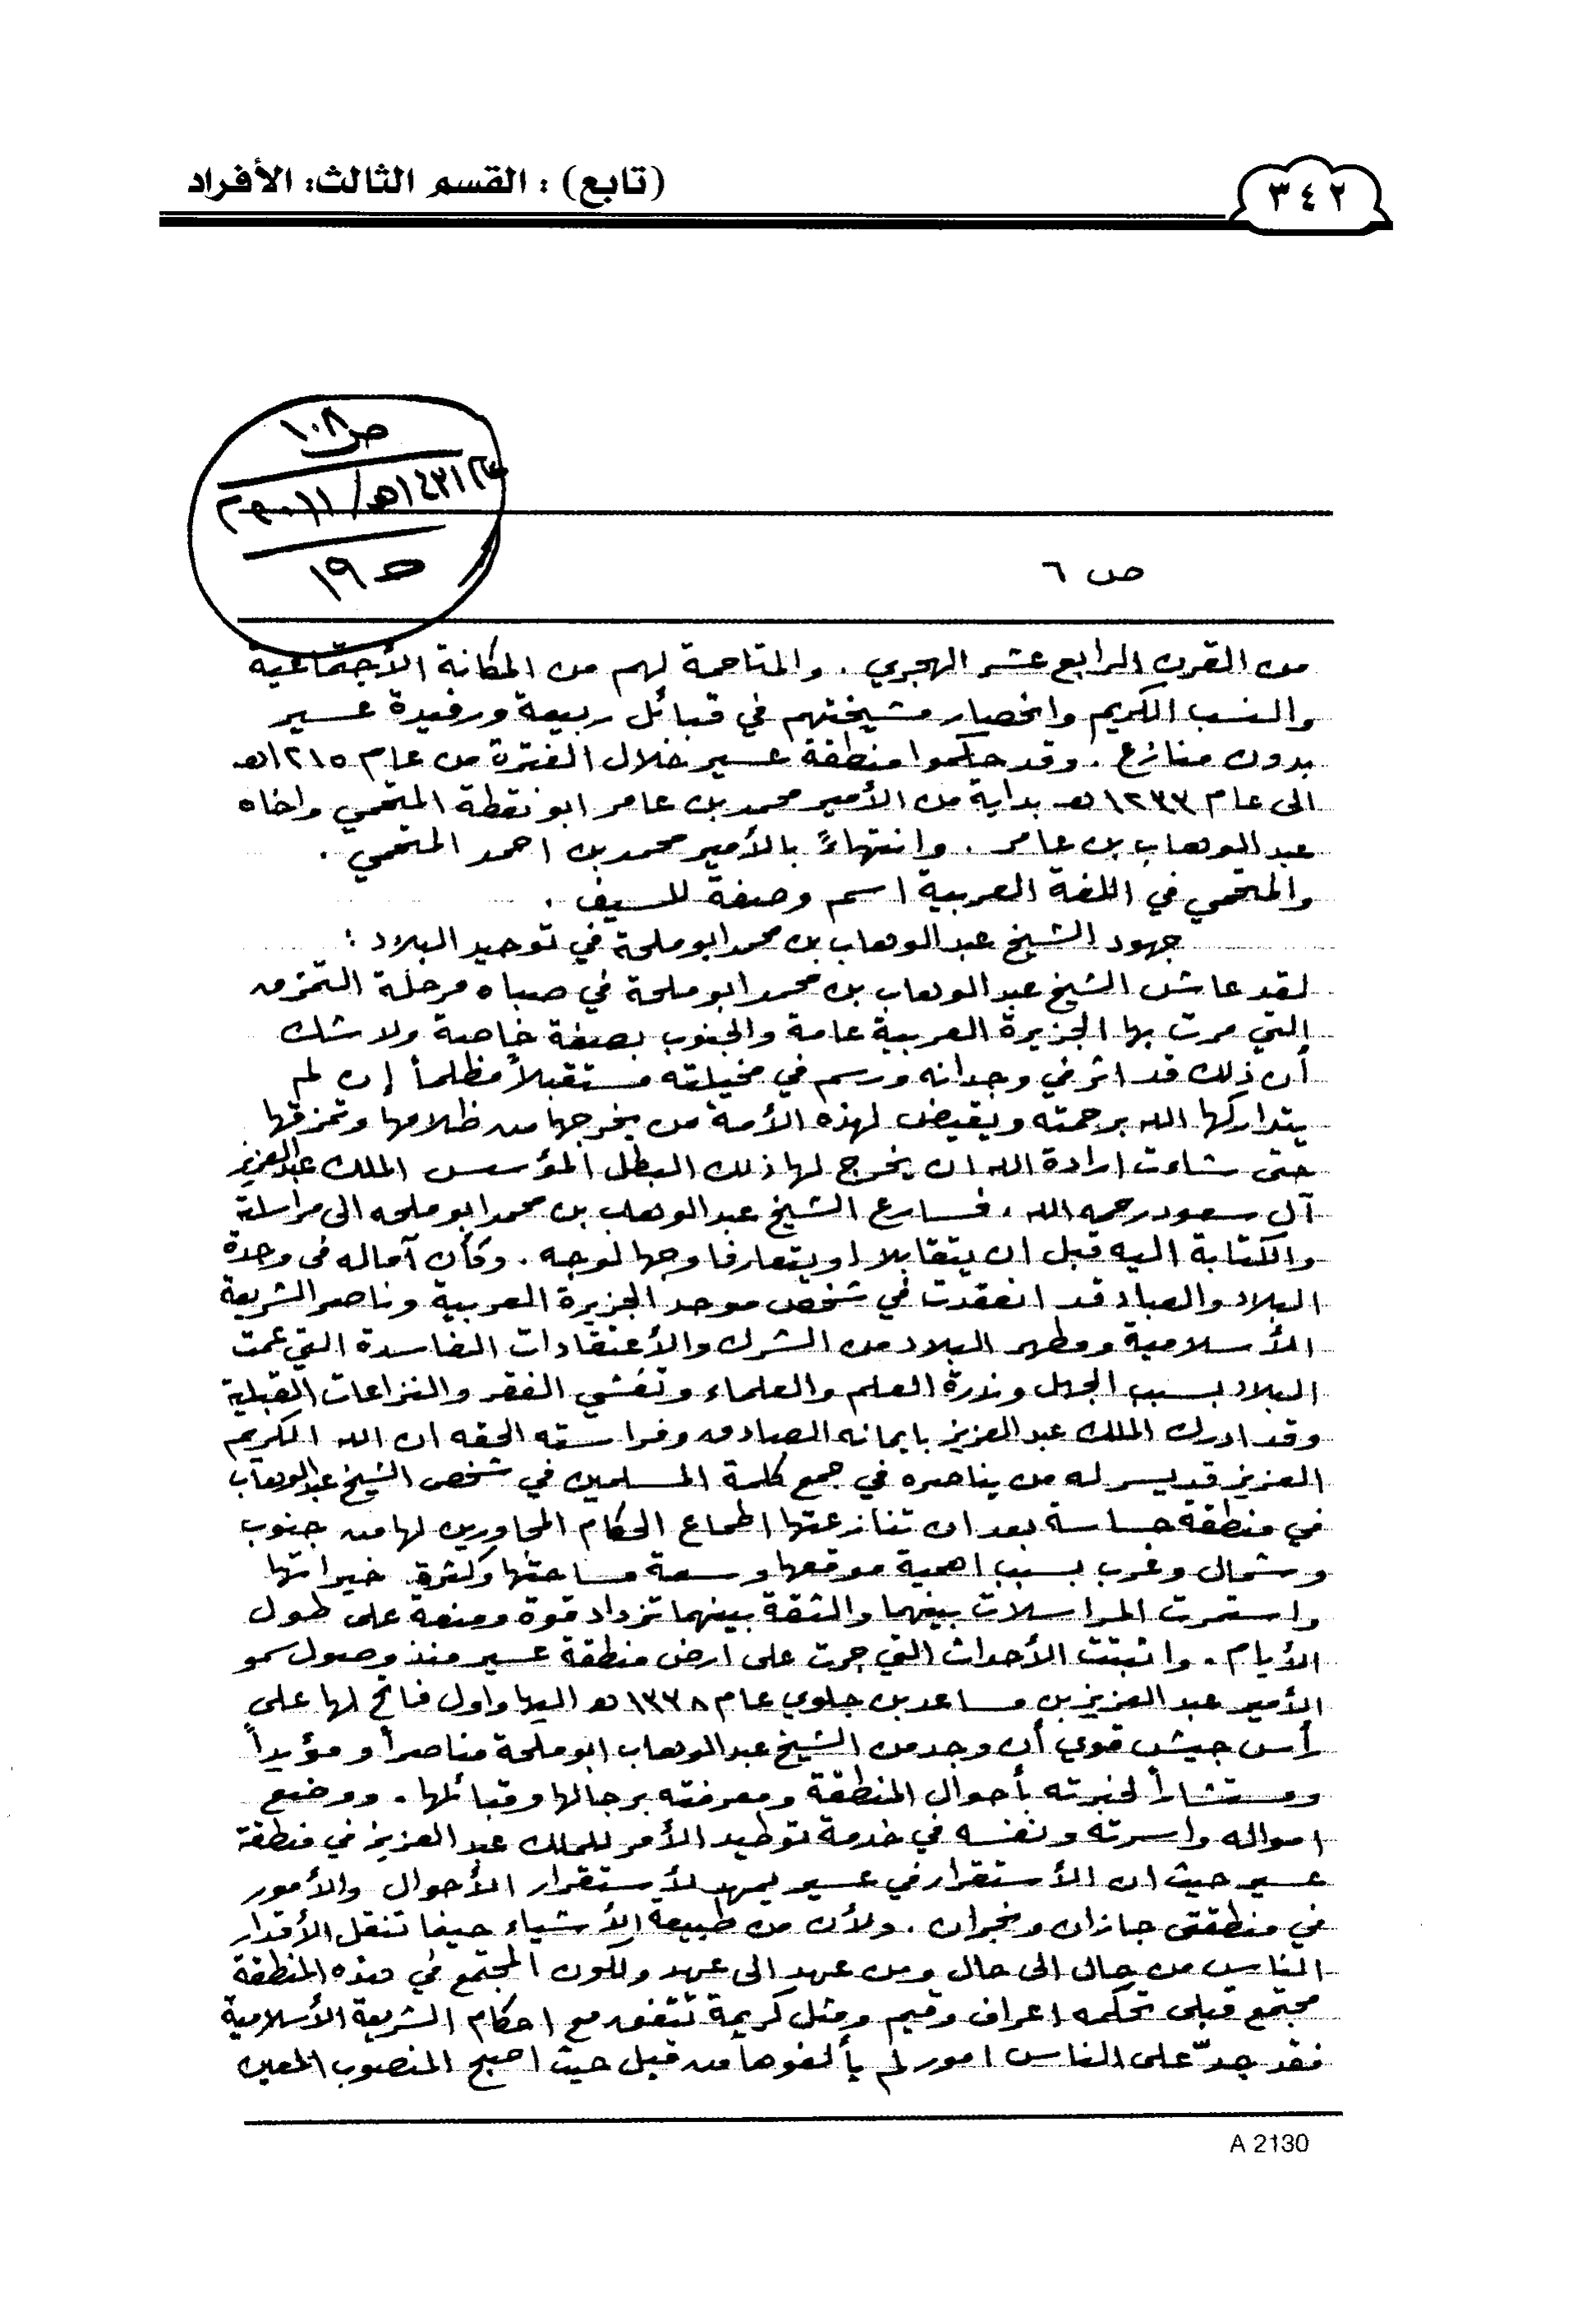 ٣٤٢
(تابع) : القسم الثالث: الأفراد
ص١٠٨
١٤٣١هـ / ٢٠١١م
ص ١٩
ص ٦
من القرن الرابع عشر الهجري . والمتاحمة لهم من المكانة الأجتماعية
والنسب الكريم وانحصار مشيختهم في قبائل ربيعة ورفيدة عسير
بدون منازع . وقد حكموا منطقة عسير خلال الفترة من عام ١٢١٥هـ
الى عام ١٢٣٣هـ بداية من الأمير محمد بن عامر ابو نقطة المتحمي واخاه
عبد الوهاب بن عامر . وانتهاءً بالأمير محمد بن احمد المتحمي .
والمتحمي في اللغة العربية اسم وصفة للسيف .
جهود الشيخ عبد الوهاب بن محمد ابو ملحة في توحيد البلاد :
لقد عاش الشيخ عبد الوهاب بن محمد ابو ملحة في صباه مرحلة التمزق
التي مرت بها الجزيرة العربية عامة والجنوب بصفة خاصة ولا شك
أن ذلك قد اثر في وجدانه ورسم في مخيلته مستقبلاً مظلماً إن لم
يتداركها الله برحمته ويقيض لهذه الأمة من يخرجها من ظلامها وتمزقها
حتى شاءت ارادة الله ان يخرج لها ذلك البطل المؤسس الملك عبد العزيز
آل سعود رحمه الله ، فسارع الشيخ عبد الوهاب بن محمد ابو ملحه الى مراسلة
والكتابة اليه قبل ان يتقابلا او يتعارفا وجها لوجه . وكأن آماله في وحدة
البلاد والعباد قد انعقدت في شخص موحد الجزيرة العربية وناصر الشريعة
الأسلامية ومطهر البلاد من الشرك والأعتقادات الفاسدة التي عمت
البلاد بسبب الجهل وندرة العلم والعلماء وتفشي الفقر والنزاعات القبلية
وقد ادرك الملك عبد العزيز بايمانه الصادق وفراسته الحقه ان الله الكريم
العزيز قد يسر له من يناصره في جمع كلمة المسلمين في شخص الشيخ عبد الوهاب
في منطقة حساسة بعد ان تنازعتها اطماع الحكام المجاورين لها من جنوب
وشمال وغرب بسبب اهمية موقعها وسعة مساحتها وكثرة خيراتها
واستمرت المراسلات بينهما والثقة بينهما تزداد قوة ومنعة على طول
الأيام . واثبتت الأحداث التي جرت على ارض منطقة عسير منذ وصول سمو
الأمير عبد العزيز بن مساعد بن جلوي عام ١٣٣٨هـ اليها واول فاتح لها على
رأس جيش قوي أن وجد من الشيخ عبد الوهاب ابو ملحة مناصراً ومؤيداً
ومستشاراً لخبرته بأحوال المنطقة ومعرفته برجالها وقبائلها . ووضع
امواله واسرته ونفسه في خدمة توطيد الأمر للملك عبد العزيز في منطقة
عسير حيث ان الأستقرار في عسير يمهد لأستقرار الأحوال والأمور
في منطقتي جازان ونجران . ولأن من طبيعة الأشياء حينما تنقل الأقدار
الناس من حال الى حال ومن عهد الى عهد ولكون المجتمع في هذه المنطقة
مجتمع قبلي تحكمه اعراف وقيم ومثل كريمة تتفق مع احكام الشريعة الأسلامية
فقد جدّ على الناس امور لم يألفوها من قبل حيث اصبح المنصوب المعين
A 2130